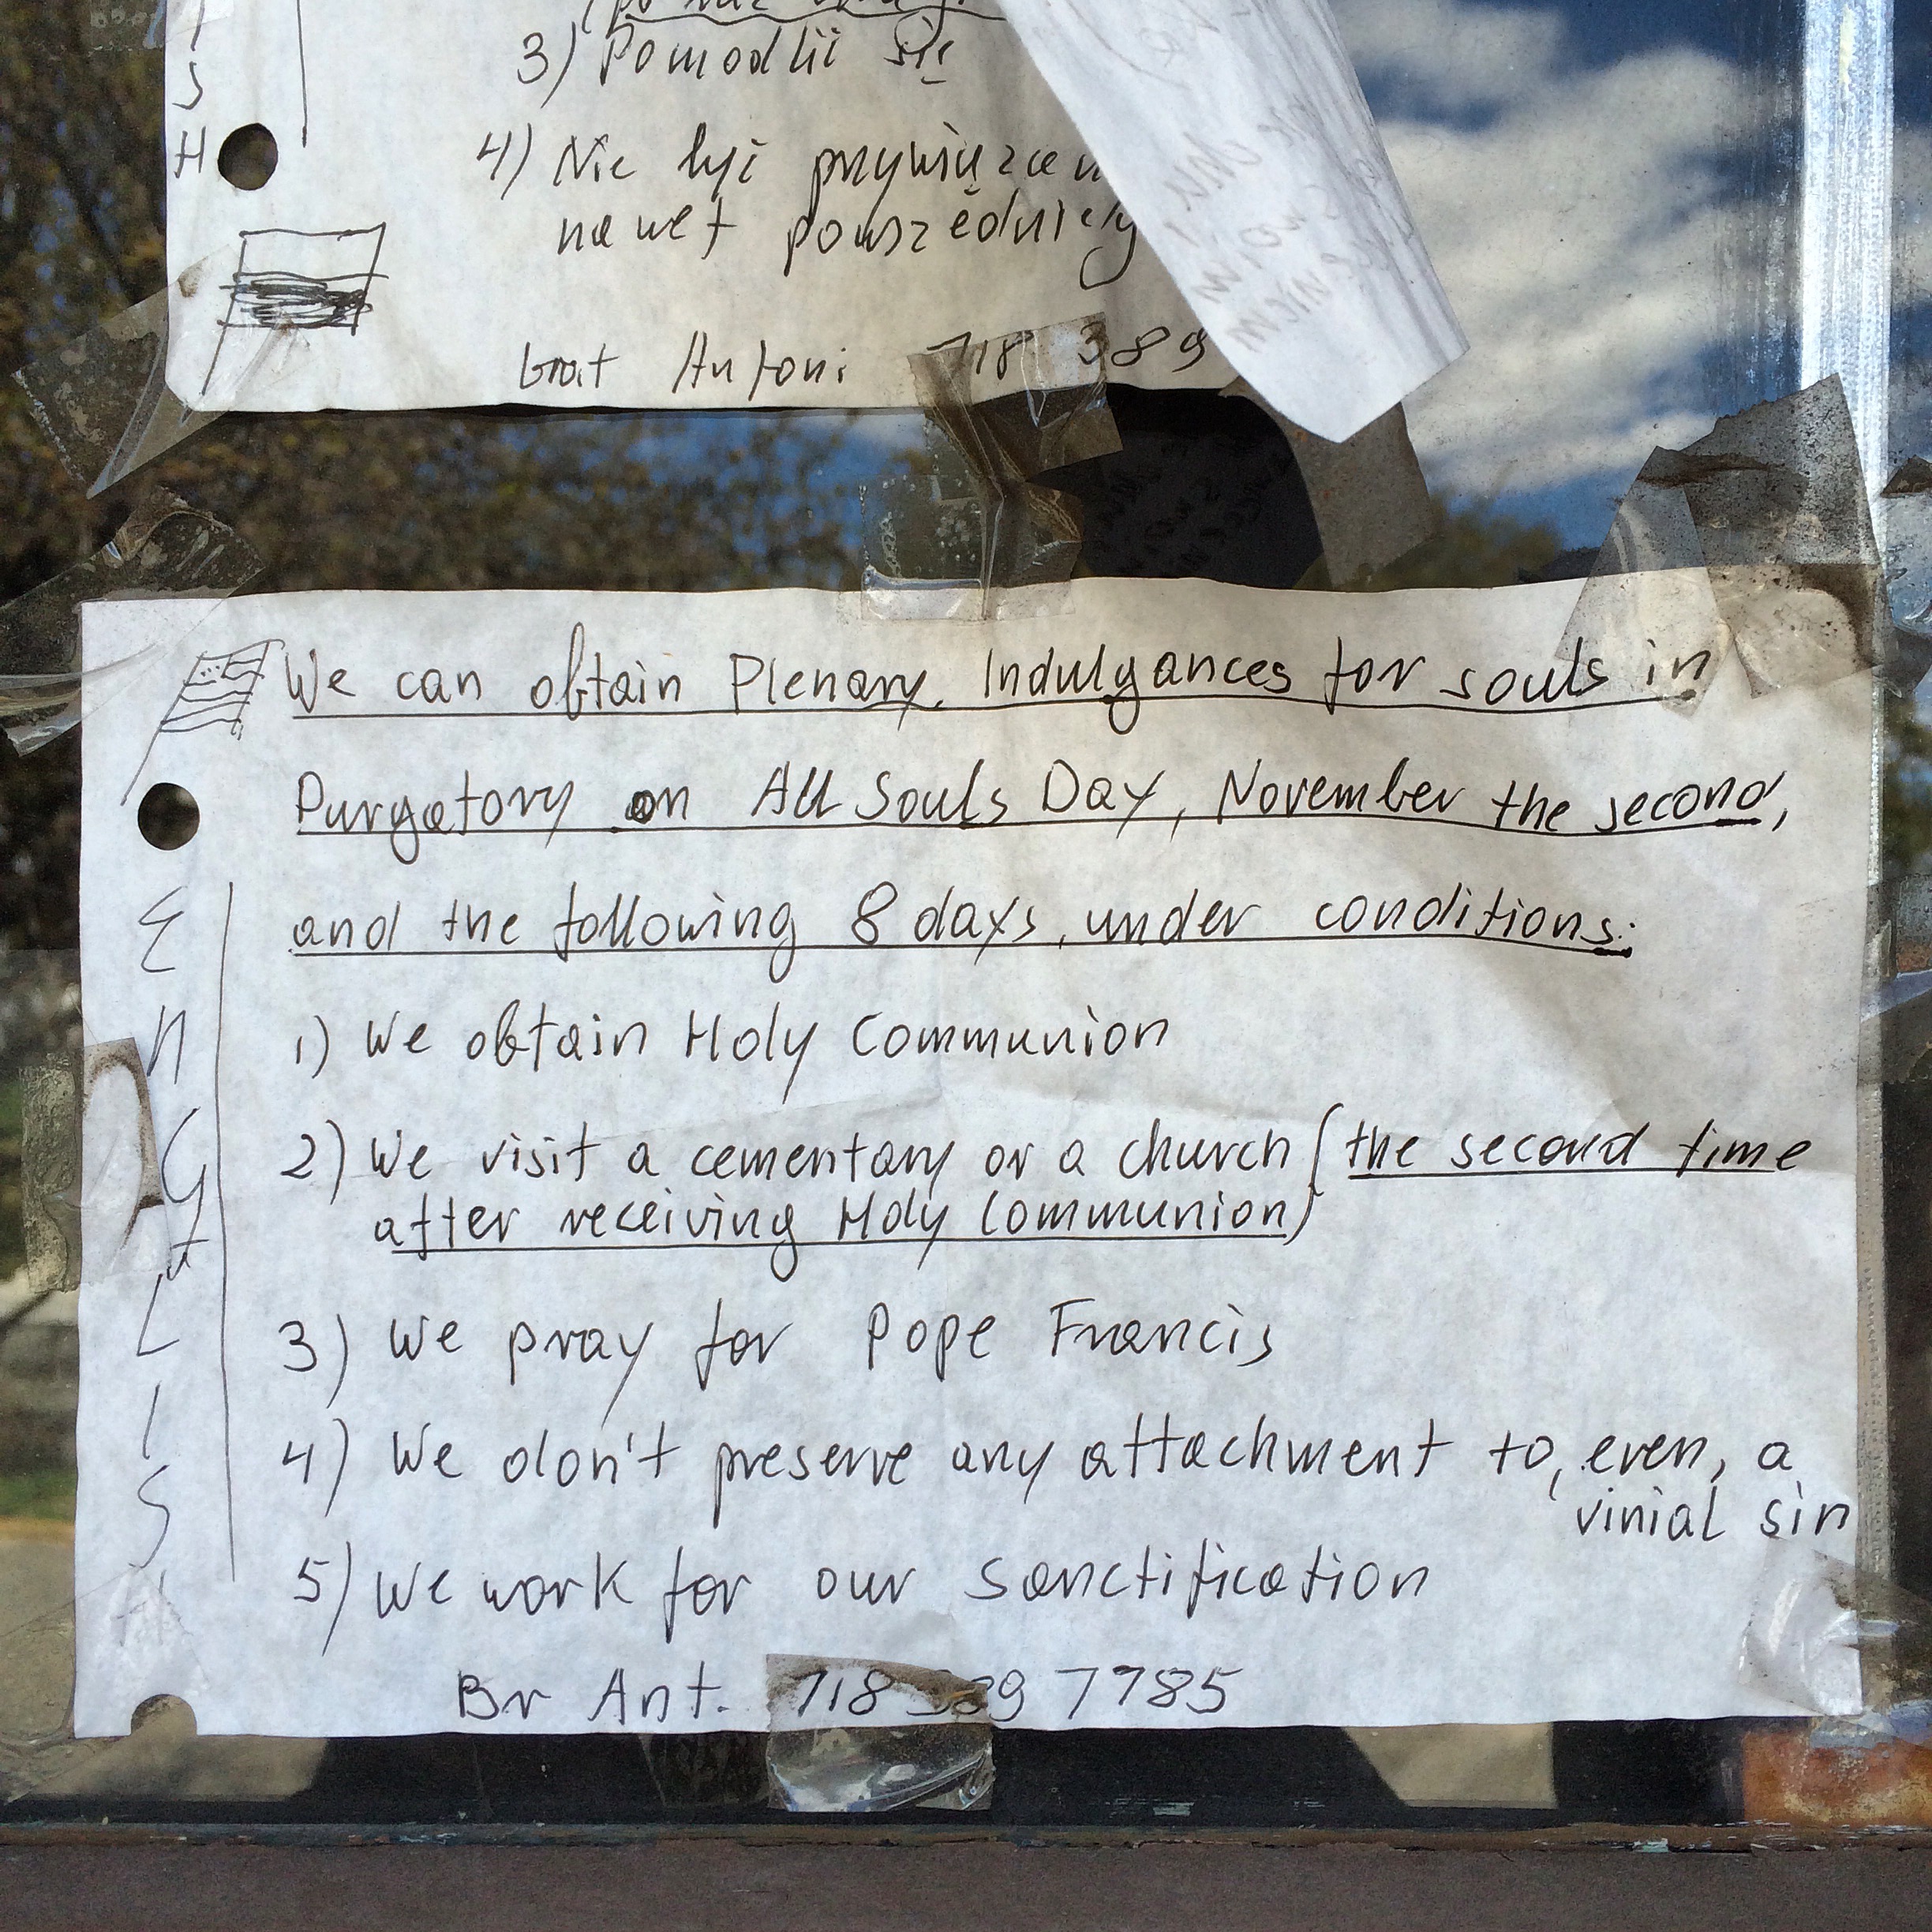 S
H
3) Pomodlić się
4) Nie być
nawet
brat Antoni 718 389
We can obtain Plenary Indulgances for souls in
Purgatory on All Souls Day, November the second,
and the following 8 days, under conditions:
1) We obtain Holy Communion
2) We visit a cementary or a church (the second time
after receiving Holy Communion)
3) We pray for Pope Francis
4) We don't preserve any attachment to, even, a
vinial sin
5) We work for our sanctification
Br Ant. 718 389 7785
E
N
G
L
I
S
H